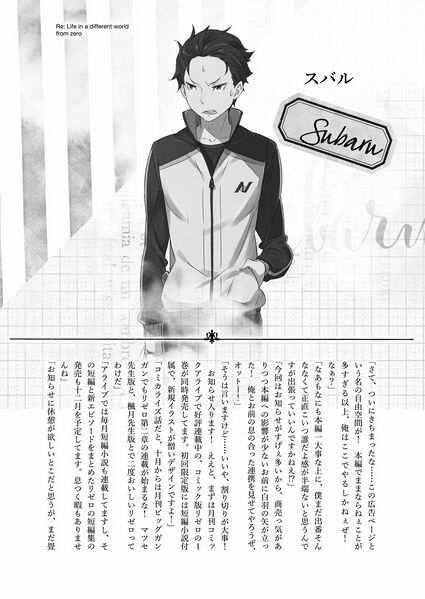 Re: Life in a different world
from zero
スバル
Subaru
「さて、ついにきちまったな……この広告ページと
いう名の自由空間が! 本編でままならねぇことが
多すぎる以上、俺はここでやるしかねぇぜ!
なぁ?」
「なあもなにも本編一大事な上に、僕まだ出番そん
ななくて正直こいつ誰だよ感が半端ないと思うんで
すが出張ってていいんですかねえ!?」
「今回はお知らせがすげぇ多いから、商売っ気があ
りつつ本編への影響が少ないお前に白羽の矢が立っ
た! 俺とお前の息の合った連携を見せてやろうぜ、
オットー!」
「そうは言いますけど……いや、割り切りが大事!
お知らせ入ります! ええと、まずは月刊コミッ
クアライブで好評連載中の、コミック版リゼロの1
巻が同時発売してます。初回限定版には短編小説付
属で、新規イラストが憎いデザインですよ!」
「コミカライズ話だと、十月からは月刊ビッグガン
ガンでもリゼロ第二章の連載が始まるな! マツセ
先生版と、楓月先生版とで二度おいしいリゼロって
わけだ」
「アライブでは毎月短編小説も連載してますし、そ
の短編と新エピソードをまとめたリゼロの短編集の
発売も十二月を予定してます。息つく暇もありませ
んね」
「お知らせに休憩が欲しいとこだと思うが、まだ畳